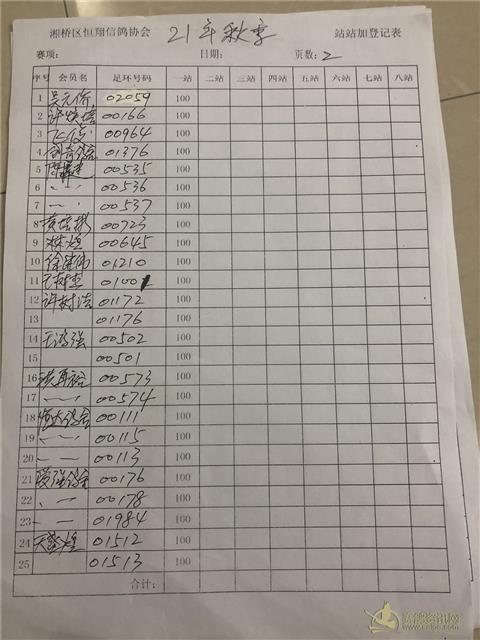 湘桥区恒翔信鸽协会 21年秋季 站站加登记表
赛项: 日期: 页数: 2
序号 会员名 足环号码 一站 二站 三站 四站 五站 六站 七站 八站
1 吴元侨 02059 100
2 00166 100
3 飞仪 00964 100
4 01376 100
5 00535 100
6 〃 〃 00536 100
7 〃 〃 00537 100
8 黄培彬 00723 100
9 林煌 00645 100
10 徐锦伟 01210 100
11 01001 100
12 许树浩 01172 100
13 01176 100
14 王鸿强 00502 100
15 00501 100
16 洪再裕 00573 100
17 〃 〃 00574 100
18 恒大鸽舍 00111 100
19 〃 〃 00115 100
20 〃 〃 00113 100
21 鸽舍 00176 100
22 〃 〃 00178 100
23 〃 〃 01984 100
24 01512 100
25 01513 100
合计:
赛鸽资讯网
www.saige.com